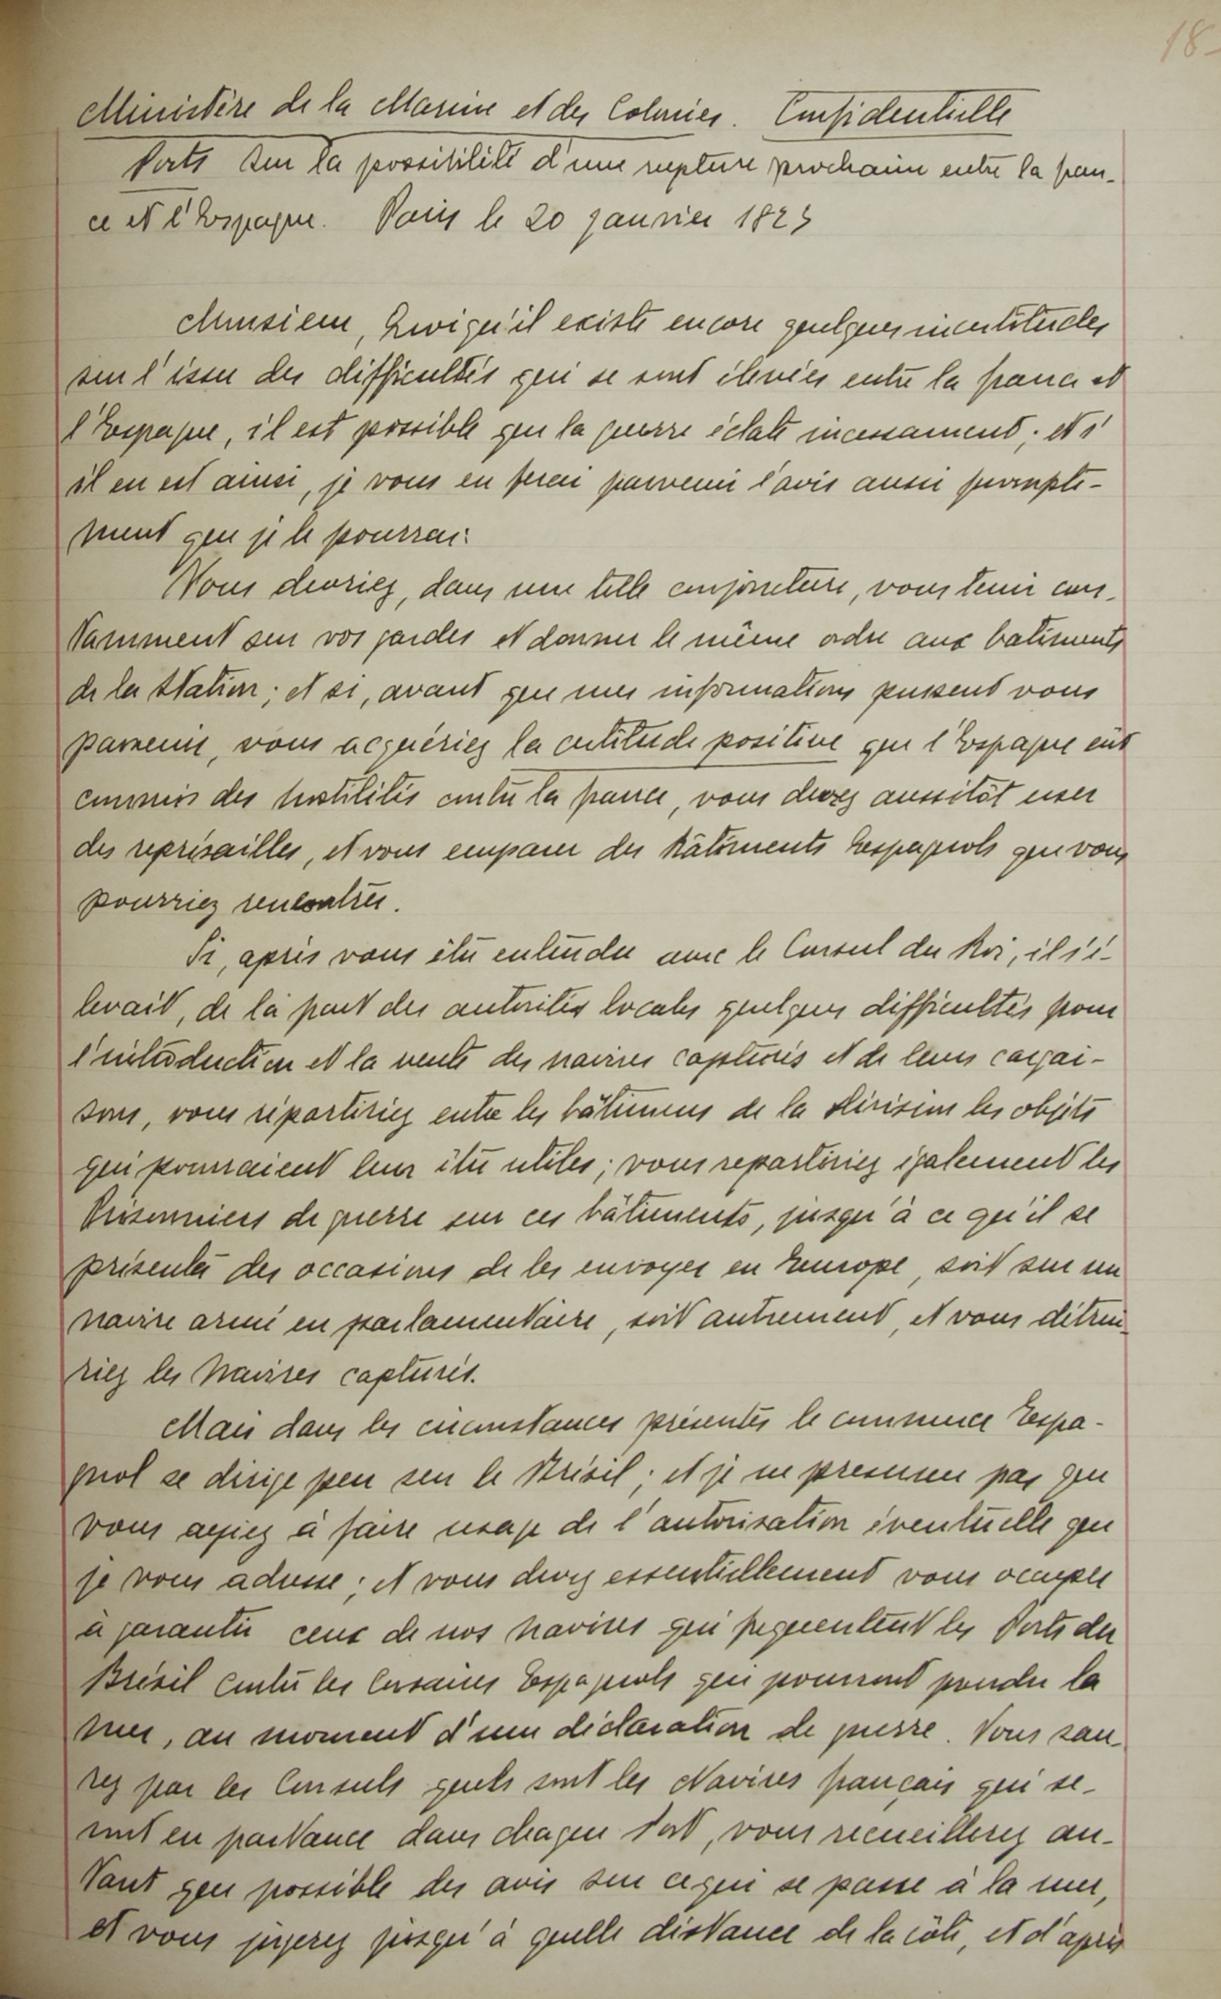 18-
Ministère de la Marine et des Colonies. Confidentielle
Ports Sur la possibilité d'une rupture prochaine entre la fran-
ce et l'Espagne. Paris le 20 janvier 1823
Monsieur, Quoiqu'il existe encore quelques incertitudes
sur l'issue des difficultés qui se sont élevées entre la france et
l'Espagne, il est possible que la guerre éclate incessament; et s'
il en est ainsi, je vous en ferai parvenir l'avis aussi prompte-
ment que je le pourrai.
Vous devriez, dans une telle conjoncture, vous tenir cons-
tamment sur vos gardes et donner le même ordre aux batiments
de la station; et si, avant que mes informations pussent vous
parvenir, vous acquériez la certitude positive que l'Espagne eût
commis des hostilités contre la france, vous devez aussitôt user
des représailles, et vous emparer des Bâtiments Espagnols que vous
pourriez rencontrer.
Si, après vous être entendu avec le Consul du Roi, il s'é-
levait, de la part des autorités locales quelques difficultés pour
l'introduction et la vente des navires capturés et de leurs cargai-
sons, vous répartiriez entre les bâtimens de la Division les objets
qui pourraient leur être utiles; vous repartiriez également les
Prisonniers de guerre sur ces bâtiments, jusqu'à ce qu'il se
présenta des occasions de les envoyer en Europe, soit sur un
navire armé en parlamentaire, soit autrement, et vous détrui-
riez les Navires capturés.
Mais dans les circonstances présentes le commerce Espa-
gnol se dirige peu sur le Brésil; et je ne presume pas que
vous ayiez à faire usage de l'autorisation éventuelle que
je vous adresse; et vous devez essentiellement vous occuper
à garantir ceux de nos navires qui frequentent les Ports du
Brésil contre les Corsaires Espagnols qui pourront prendre la
mer, au moment d'une déclaration de guerre. Vous sau-
rez par les Consuls quels sont les Navires français qui se-
ront en partance dans chaque Port, vous recueillerez au-
tant que possible des avis sur ce qui se passe à la mer,
et vous jugerez jusqu'à quelle distance de la côte, et d'après